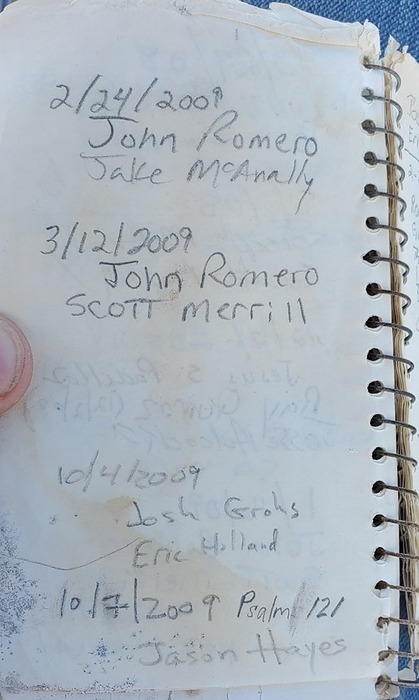 2/24/2009
John Romero
Jake McAnally
3/12/2009
John Romero
Scott Merrill
10/4/2009
Josh Grohs
Eric Holland
10/7/2009 Psalm 121
Jason Hayes